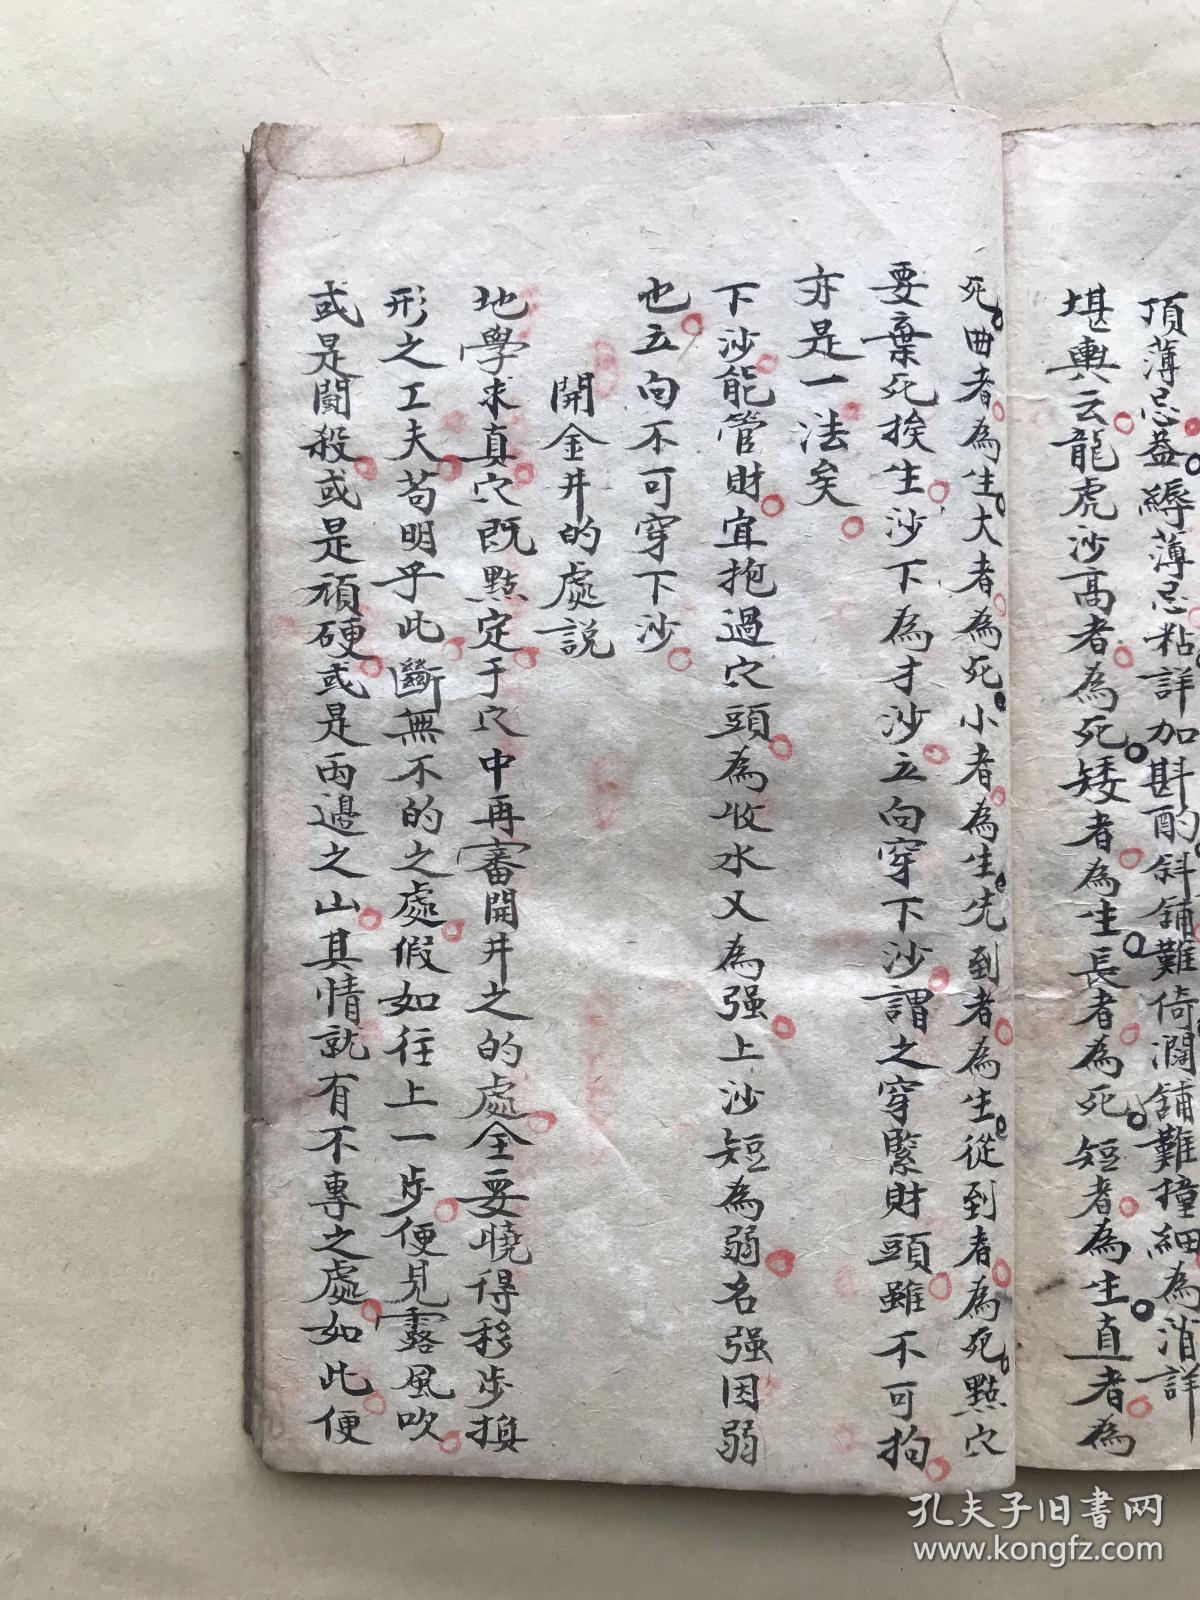 頂薄忌益縟薄忌粘詳加斟酌斜鋪難倚濶鋪難撞細為消詳
堪輿云龍虎沙高者為死矮者為生長者為死短者為生直者為
死曲者為生大者為死小者為生先到者為生從到者為死點穴
要棄死挨生沙下為才沙立向穿下沙謂之穿緊財頭雖不可拘
亦是一法矣
下沙能管財宜抱過穴頭為收水又為强上沙短為弱名强因弱
也立向不可穿下沙
開金井的處說
地學求真穴既點定于穴中再審開井之的處全要曉得移步換
形之工夫苟明乎此斷無不的之處假如往上一步便見露風吹
或是鬪殺或是頑硬或是两邊之山其情就有不專之處如此便
孔夫子旧书网
www.kongfz.com